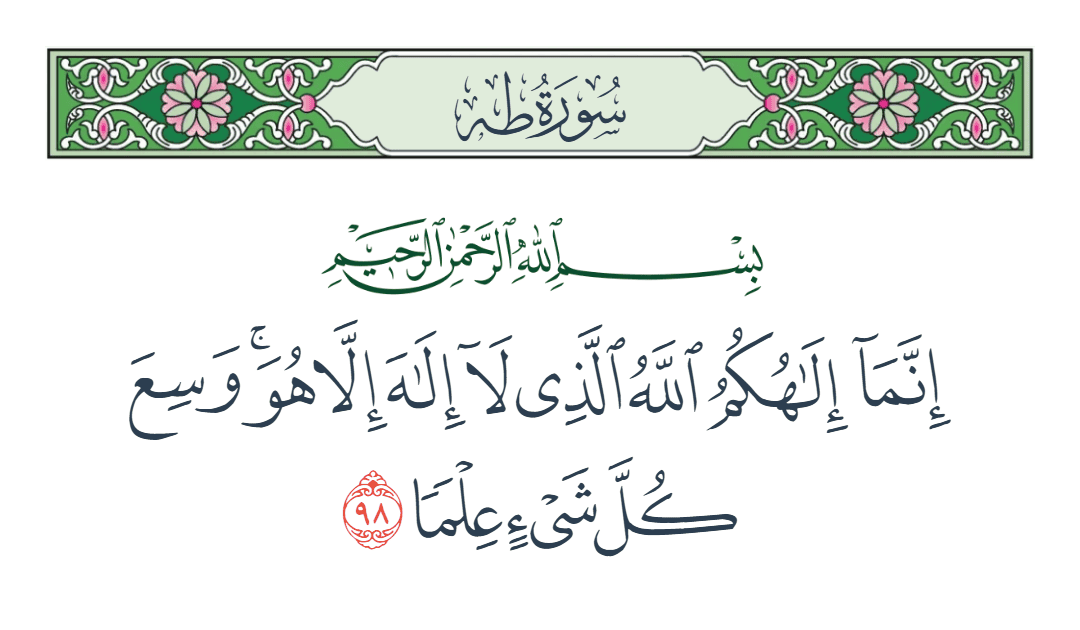 سُورَةُ طه
بِسْمِ ٱللَّهِ ٱلرَّحْمَٰنِ ٱلرَّحِيمِ
إِنَّمَآ إِلَٰهُكُمُ ٱللَّهُ ٱلَّذِى لَآ إِلَٰهَ إِلَّا هُوَ ۚ وَسِعَ
كُلَّ شَىْءٍ عِلْمًا ٩٨